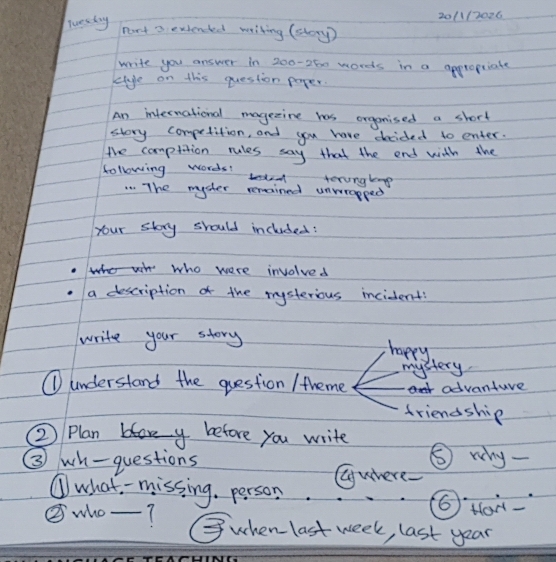 Tuesday 20/1/2026
Part 3 extended writing (story)
write you answer in 200-250 words in a appropriate
style on this question paper.
An international magezine has organised a short
story competition, and you have decided to enter.
the comptition rules say that the end with the
following words:
terungkap
... The myster remained unwrapped
Your story should included:
• who were involved
• a description of the mysterious incident:
write your story
① understand the question/theme
happy
mystery
advanture
friendship
② Plan before you write
③ wh-questions
① what - missing person
② who — ?
③ when - last week, last year
④ where -
⑤ why -
⑥ How -
LANGUAGE TEACHING